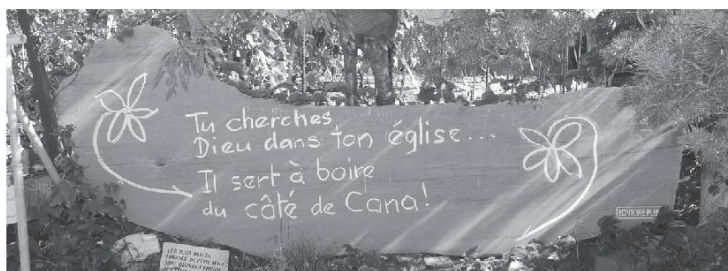 Tu cherches
Dieu dans ton église...
Il sert à boire
du côté de Cana!
LES PLUS